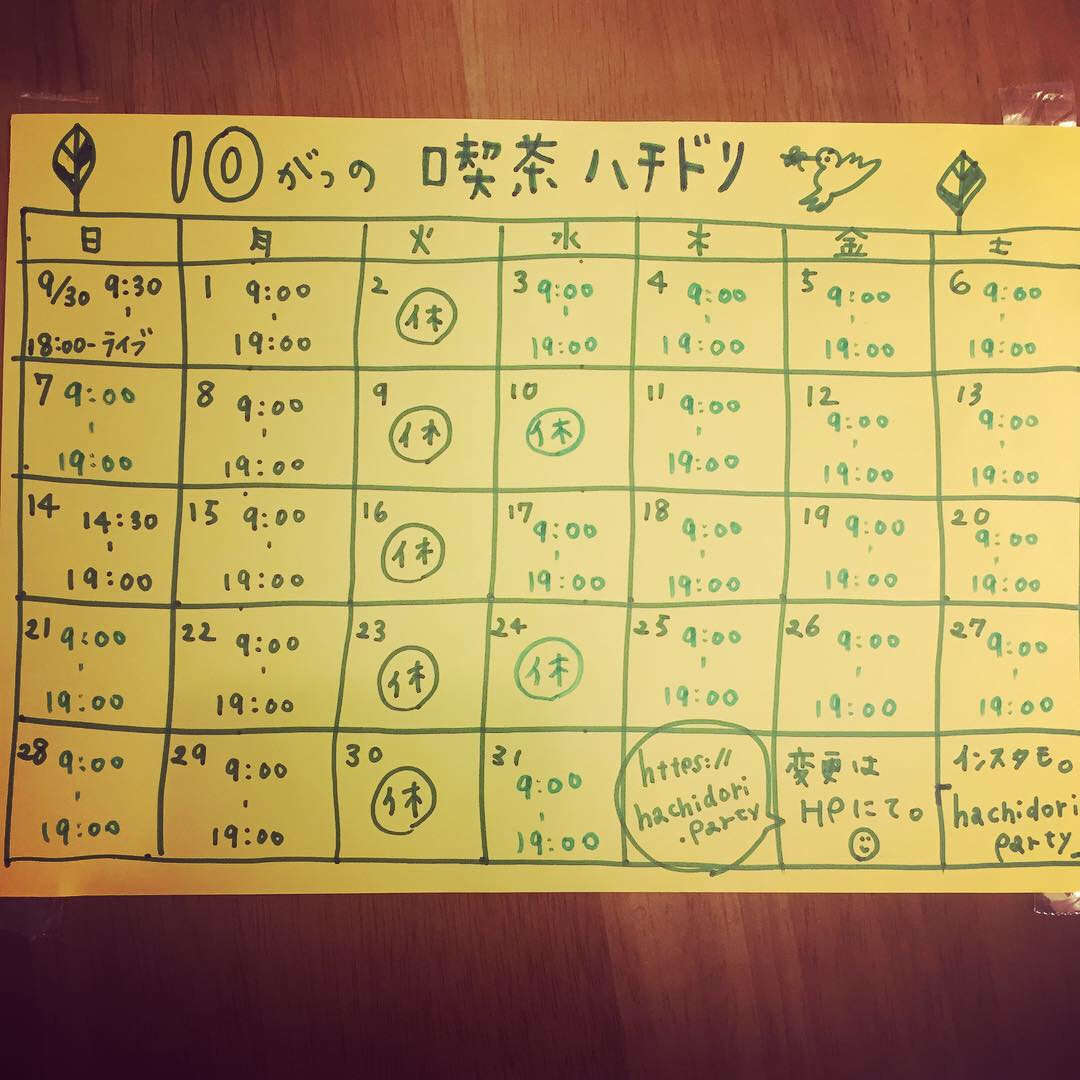 10がつの 喫茶ハチドリ
日 月 火 水 木 金 土
9/30 9:30
-
18:00-ライブ
1 9:00
-
19:00
2 休
3 9:00
-
19:00
4 9:00
-
19:00
5 9:00
-
19:00
6 9:00
-
19:00
7 9:00
-
19:00
8 9:00
-
19:00
9 休
10 休
11 9:00
-
19:00
12 9:00
-
19:00
13 9:00
-
19:00
14 14:30
-
19:00
15 9:00
-
19:00
16 休
17 9:00
-
19:00
18 9:00
-
19:00
19 9:00
-
19:00
20 9:00
-
19:00
21 9:00
-
19:00
22 9:00
-
19:00
23 休
24 休
25 9:00
-
19:00
26 9:00
-
19:00
27 9:00
-
19:00
28 9:00
-
19:00
29 9:00
-
19:00
30 休
31 9:00
-
19:00
https://
hachidori
.party
変更は
HPにて。
インスタモ。
hachidori
party_